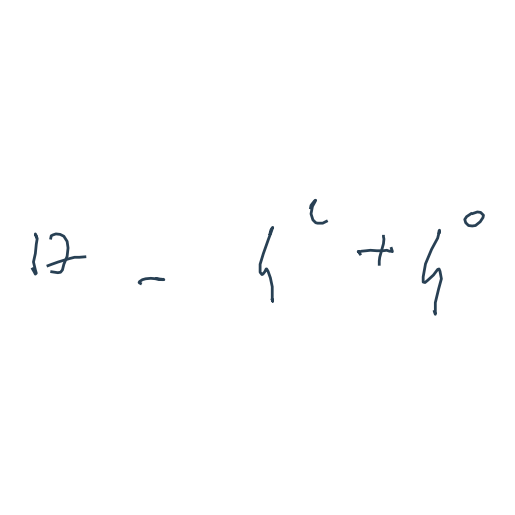 17 - 4^c + 4^0